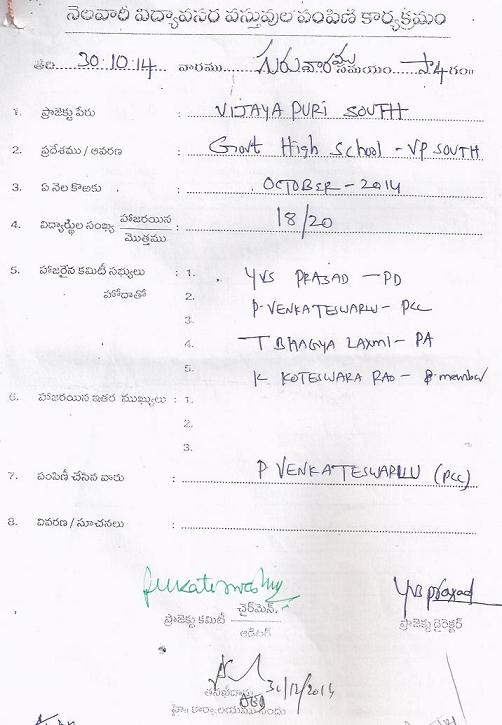 నెలవారీ విద్యావసర వస్తువుల పంపిణి కార్యక్రమం
తేది 30.10.14 వారము గురువారము సమయం సా4గం॥
1. ప్రాజెక్టు పేరు : VIJAYA PURI SOUTH
2. ప్రదేశము / ఆవరణ : Govt High School - VP SOUTH
3. ఏ నెల కొఱకు : OCTOBER - 2014
4. విద్యార్థుల సంఖ్య హాజరయిన / మొత్తము : 18/20
5. హాజరైన కమిటీ సభ్యులు : 1. YVS PRASAD - PD
హోదాతో 2. P. VENKATESWARLU - PCC
3.
4. T BHAGYA LAXMI - PA
5. K KOTESWARA RAO - member
6. హాజరయిన ఇతర ముఖ్యులు : 1.
2.
3.
7. పంపిణీ చేసిన వారు : P VENKATESWARLU (PCC)
8. వివరణ / సూచనలు :
yvsprasad
ప్రాజెక్టు కమిటీ చైర్‌మెన్. / ఆడిటర్
ప్రాజెక్టు డైరెక్టర్
31/12/2014
కార్యాలయమునందు